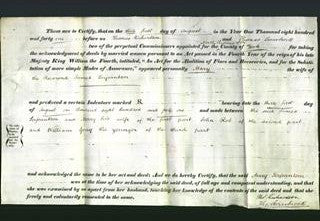 These are to Certify, that on the third day of August in the Year One thousand eight hundred
and forty one before us Thomas Richardson and Thomas
two of the perpetual Commissioners appointed for the County of York for taking
the acknowledgment of deeds by married women pursuant to an Act passed in the Fourth Year of the reign of his late
Majesty King William the Fourth, intituled, "An Act for the Abolition of Fines and Recoveries, and for the Substitution
of more simple Modes of Assurance," appeared personally Mary the wife of
the
and produced a certain Indenture marked bearing date the third day
of August one thousand eight hundred and forty one and made between the said
and Mary his wife of the first part John of the second part
and William Gray the younger of the third part
and acknowledged the same to be her act and deed: And we do hereby Certify, that the said Mary
was at the time of her acknowledging the said deed, of full age and competent understanding, and that
she was examined by us apart from her husband, touching her knowledge of the contents of the said deed and that she
freely and voluntarily consented to the same.
Richardson